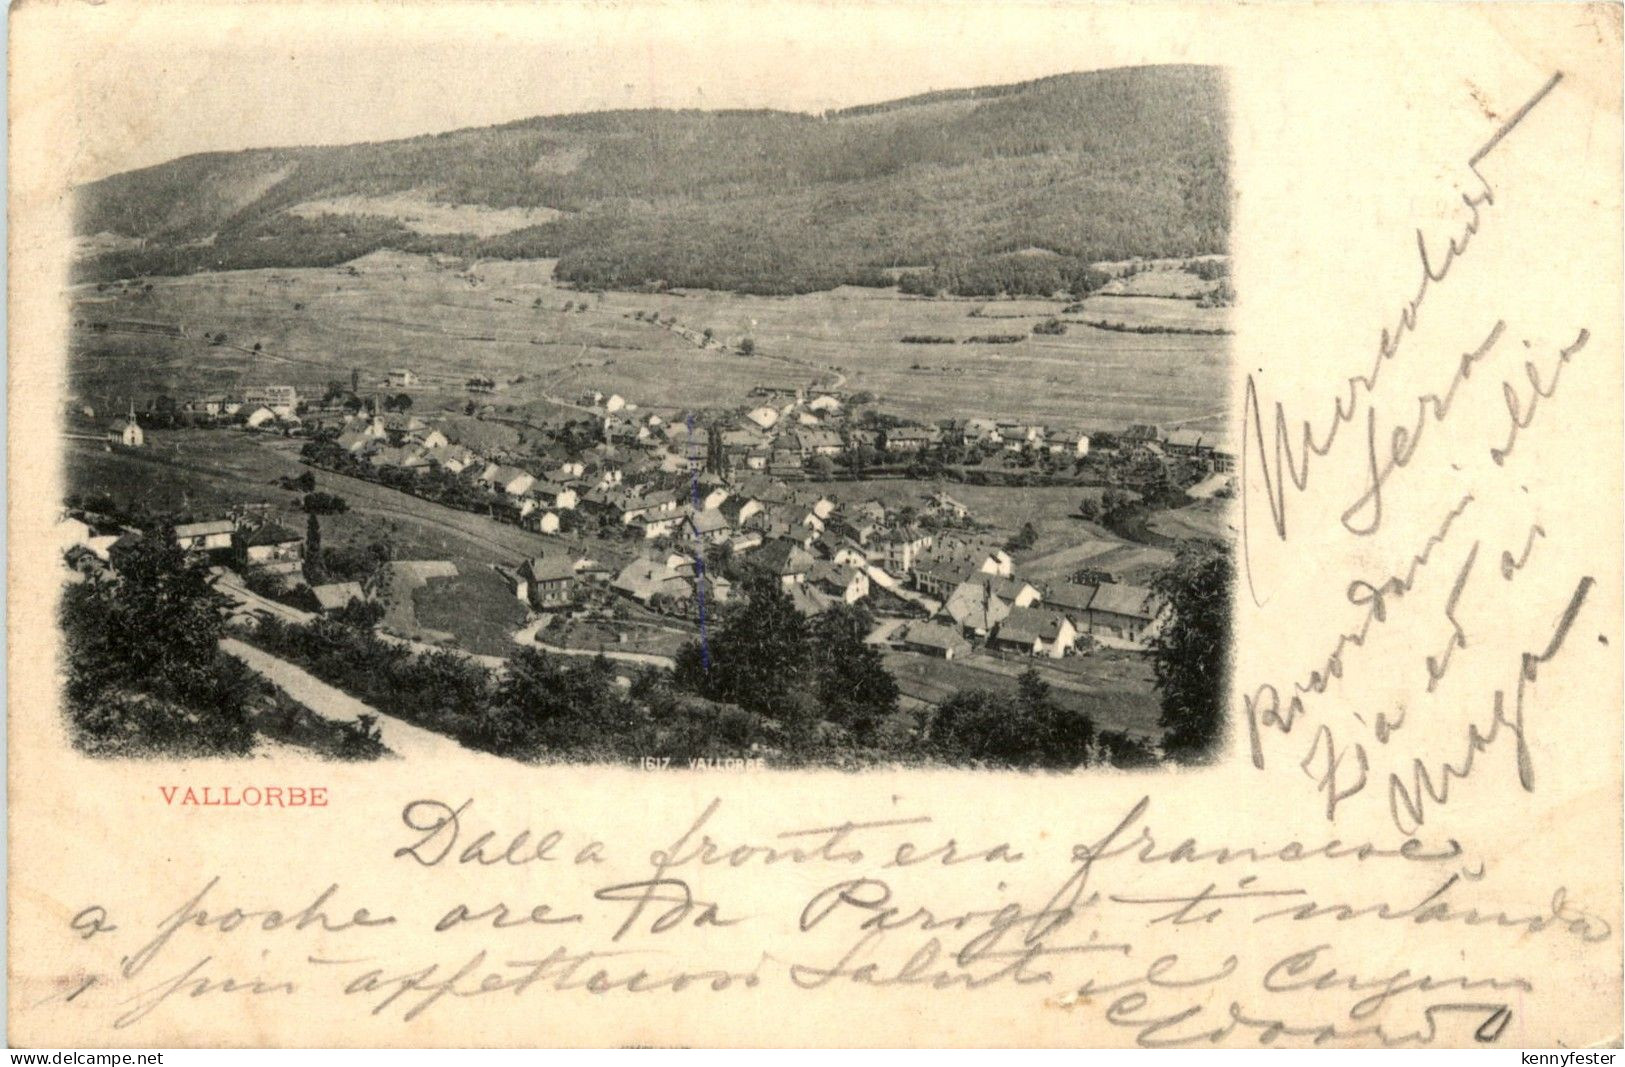 1617 VALLORBE
VALLORBE
Dalla frontiera francese
a poche ore da Parigi, ti manda
i più affettuosi saluti il Cugino
Edoardo
Mercoledì
sera
Ricordami alla
Zia ed ai
Maga.
delcampe.net
kennyfester